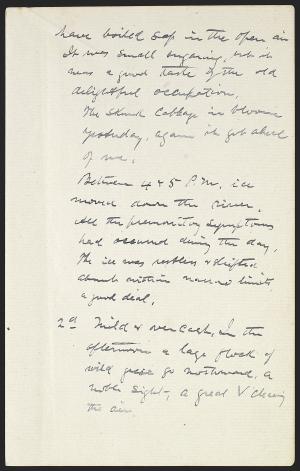 have boiled sap in the open air
It was small sugaring, but it
was a good taste of the old
delightful occupation.
The Skunk Cabbage in bloom
yesterday, again it got ahead
of me.
Between 4 & 5 P.M. ice
moved down the river.
All the premonitory symptoms
had occured during the day,
The ice was restless & shifted
about within narrow limits
a good deal.
2d Mild & overcast, in the
afternoon a large flock of
wild geese go northward, a
noble sight, a great V cleaving
the air.